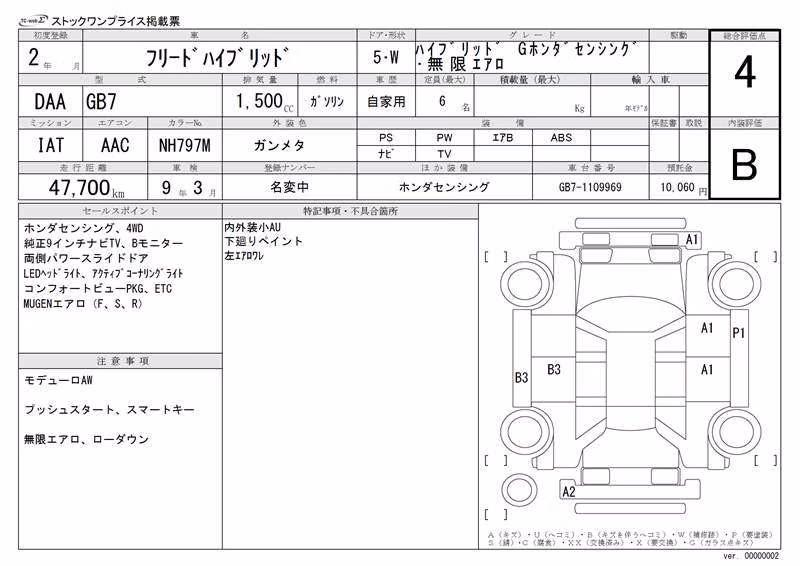 TC-webΣ ストックワンプライス掲載票
初度登録 車名 ドア・形状 グレード 駆動 総合評価点
2年 月 フリードハイブリッド 5・W ハイブリッド Gホンダセンシング
・無限エアロ
4
型式 排気量 燃料 車歴 定員(最大) 積載量(最大) 輸入車
DAA GB7 1,500CC ガソリン 自家用 6名 Kg 年モデル
ミッション エアコン カラーNo. 外装色 装備 保証書 取説 内装評価
IAT AAC NH797M ガンメタ
PS PW エアB ABS
ナビ TV
B
走行距離 車検 登録ナンバー ほか装備 車台番号 預託金
47,700km 9年3月 名変中 ホンダセンシング GB7-1109969 10,060円
セールスポイント
ホンダセンシング、4WD
純正9インチナビTV、Bモニター
両側パワースライドドア
LEDヘッドライト、アクティブコーナリングライト
コンフォートビューPKG、ETC
MUGENエアロ（F、S、R）
注意事項
モデューロAW
プッシュスタート、スマートキー
無限エアロ、ローダウン
特記事項・不具合箇所
内外装小AU
下廻りペイント
左エアロワレ
A1
[ ] [ ]
A1 P1
B3 B3 A1
[ ] [ ]
A2
[ ]
A（キズ）・U（ヘコミ）・B（キズを伴うヘコミ）・W（補修跡）・P（要塗装）
S（錆）・C（腐食）・XX（交換済み）・X（要交換）・G（ガラス点キズ）
ver. 00000002